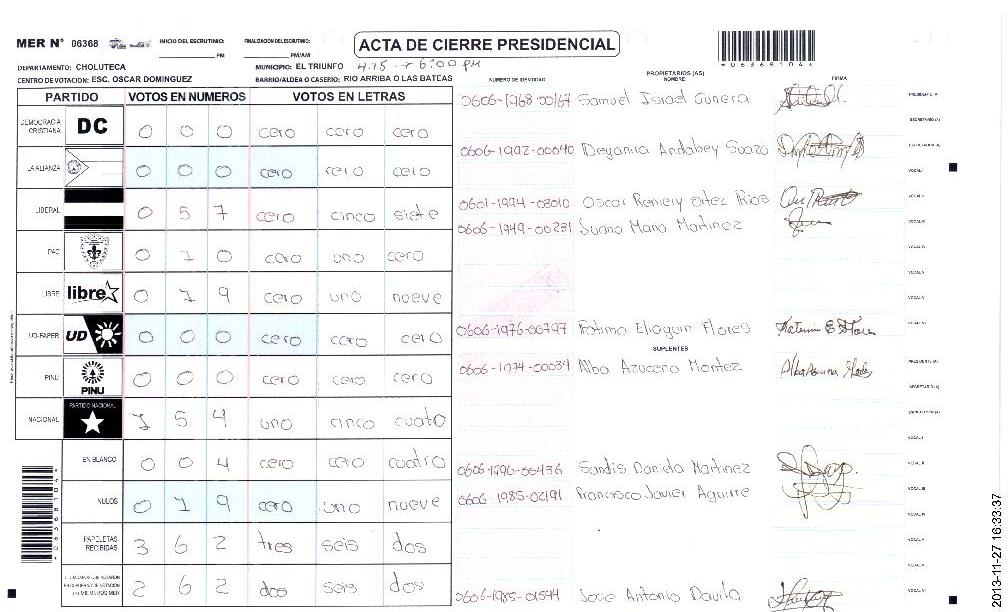 MER N° 06368
INICIO DEL ESCRUTINIO: PM
FINALIZACION DEL ESCRUTINIO: PM/AM
ACTA DE CIERRE PRESIDENCIAL
*06368104*
DEPARTAMENTO: CHOLUTECA
MUNICIPIO: EL TRIUNFO
6:00 PM
CENTRO DE VOTACION: ESC. OSCAR DOMINGUEZ
BARRIO/ALDEA O CASERIO: RIO ARRIBA O LAS BATEAS
NUMERO DE IDENTIDAD
PROPIETARIOS (AS)
NOMBRE
FIRMA
PARTIDO VOTOS EN NUMEROS VOTOS EN LETRAS
DEMOCRACIA CRISTIANA DC 0 0 0 cero cero cero
LA ALIANZA 0 0 0 cero cero cero
LIBERAL 0 5 7 cero cinco siete
PAC 0 1 0 cero uno cero
LIBRE libre 0 1 9 cero uno nueve
UD-FAPER UD 0 0 0 cero cero cero
PINU PINU 0 0 0 cero cero cero
NACIONAL PARTIDO NACIONAL 1 5 4 uno cinco cuatro
EN BLANCO 0 0 4 cero cero cuatro
NULOS 0 1 9 cero uno nueve
PAPELETAS RECIBIDAS 3 6 2 tres seis dos
2 6 2 dos seis dos
0606-1968-00167 Samuel Israel Gunera PRESIDENTE (A)
SECRETARIO (A)
0606-1992-00040 Deyanira Andabey Suazo ESCRUTADOR (A)
VOCAL I
0601-1994-03010 Oscar Reniery Ortez Rios VOCAL II
0606-1949-00231 Juana Maria Martinez VOCAL III
VOCAL IV
VOCAL V
VOCAL V
0606-1976-00797 Fatima Eliaquin Flores VOCAL VI
SUPLENTES
0606-1974-00034 Alba Azucena Montez PRESIDENTE (A)
SECRETARIO (A)
ESCRUTADOR (A)
VOCAL I
0606-1990-00436 Sandis Daniela Martinez VOCAL II
0606-1985-02191 Francisco Javier Aguirre VOCAL III
VOCAL IV
VOCAL V
VOCAL V
0606-1985-01544 Jose Antonio Davila VOCAL VI
2013-11-27 16:33:37